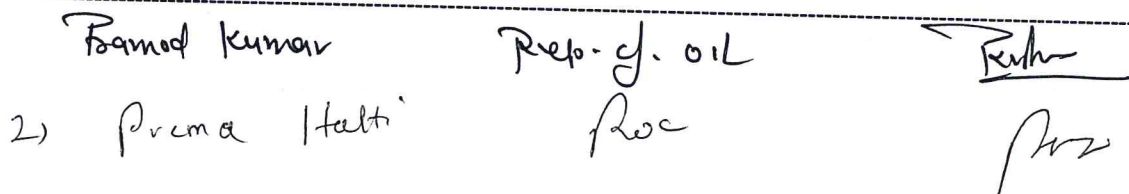 Pramod Kumar Rep. of. OIL
2) Prema Hatti Roc